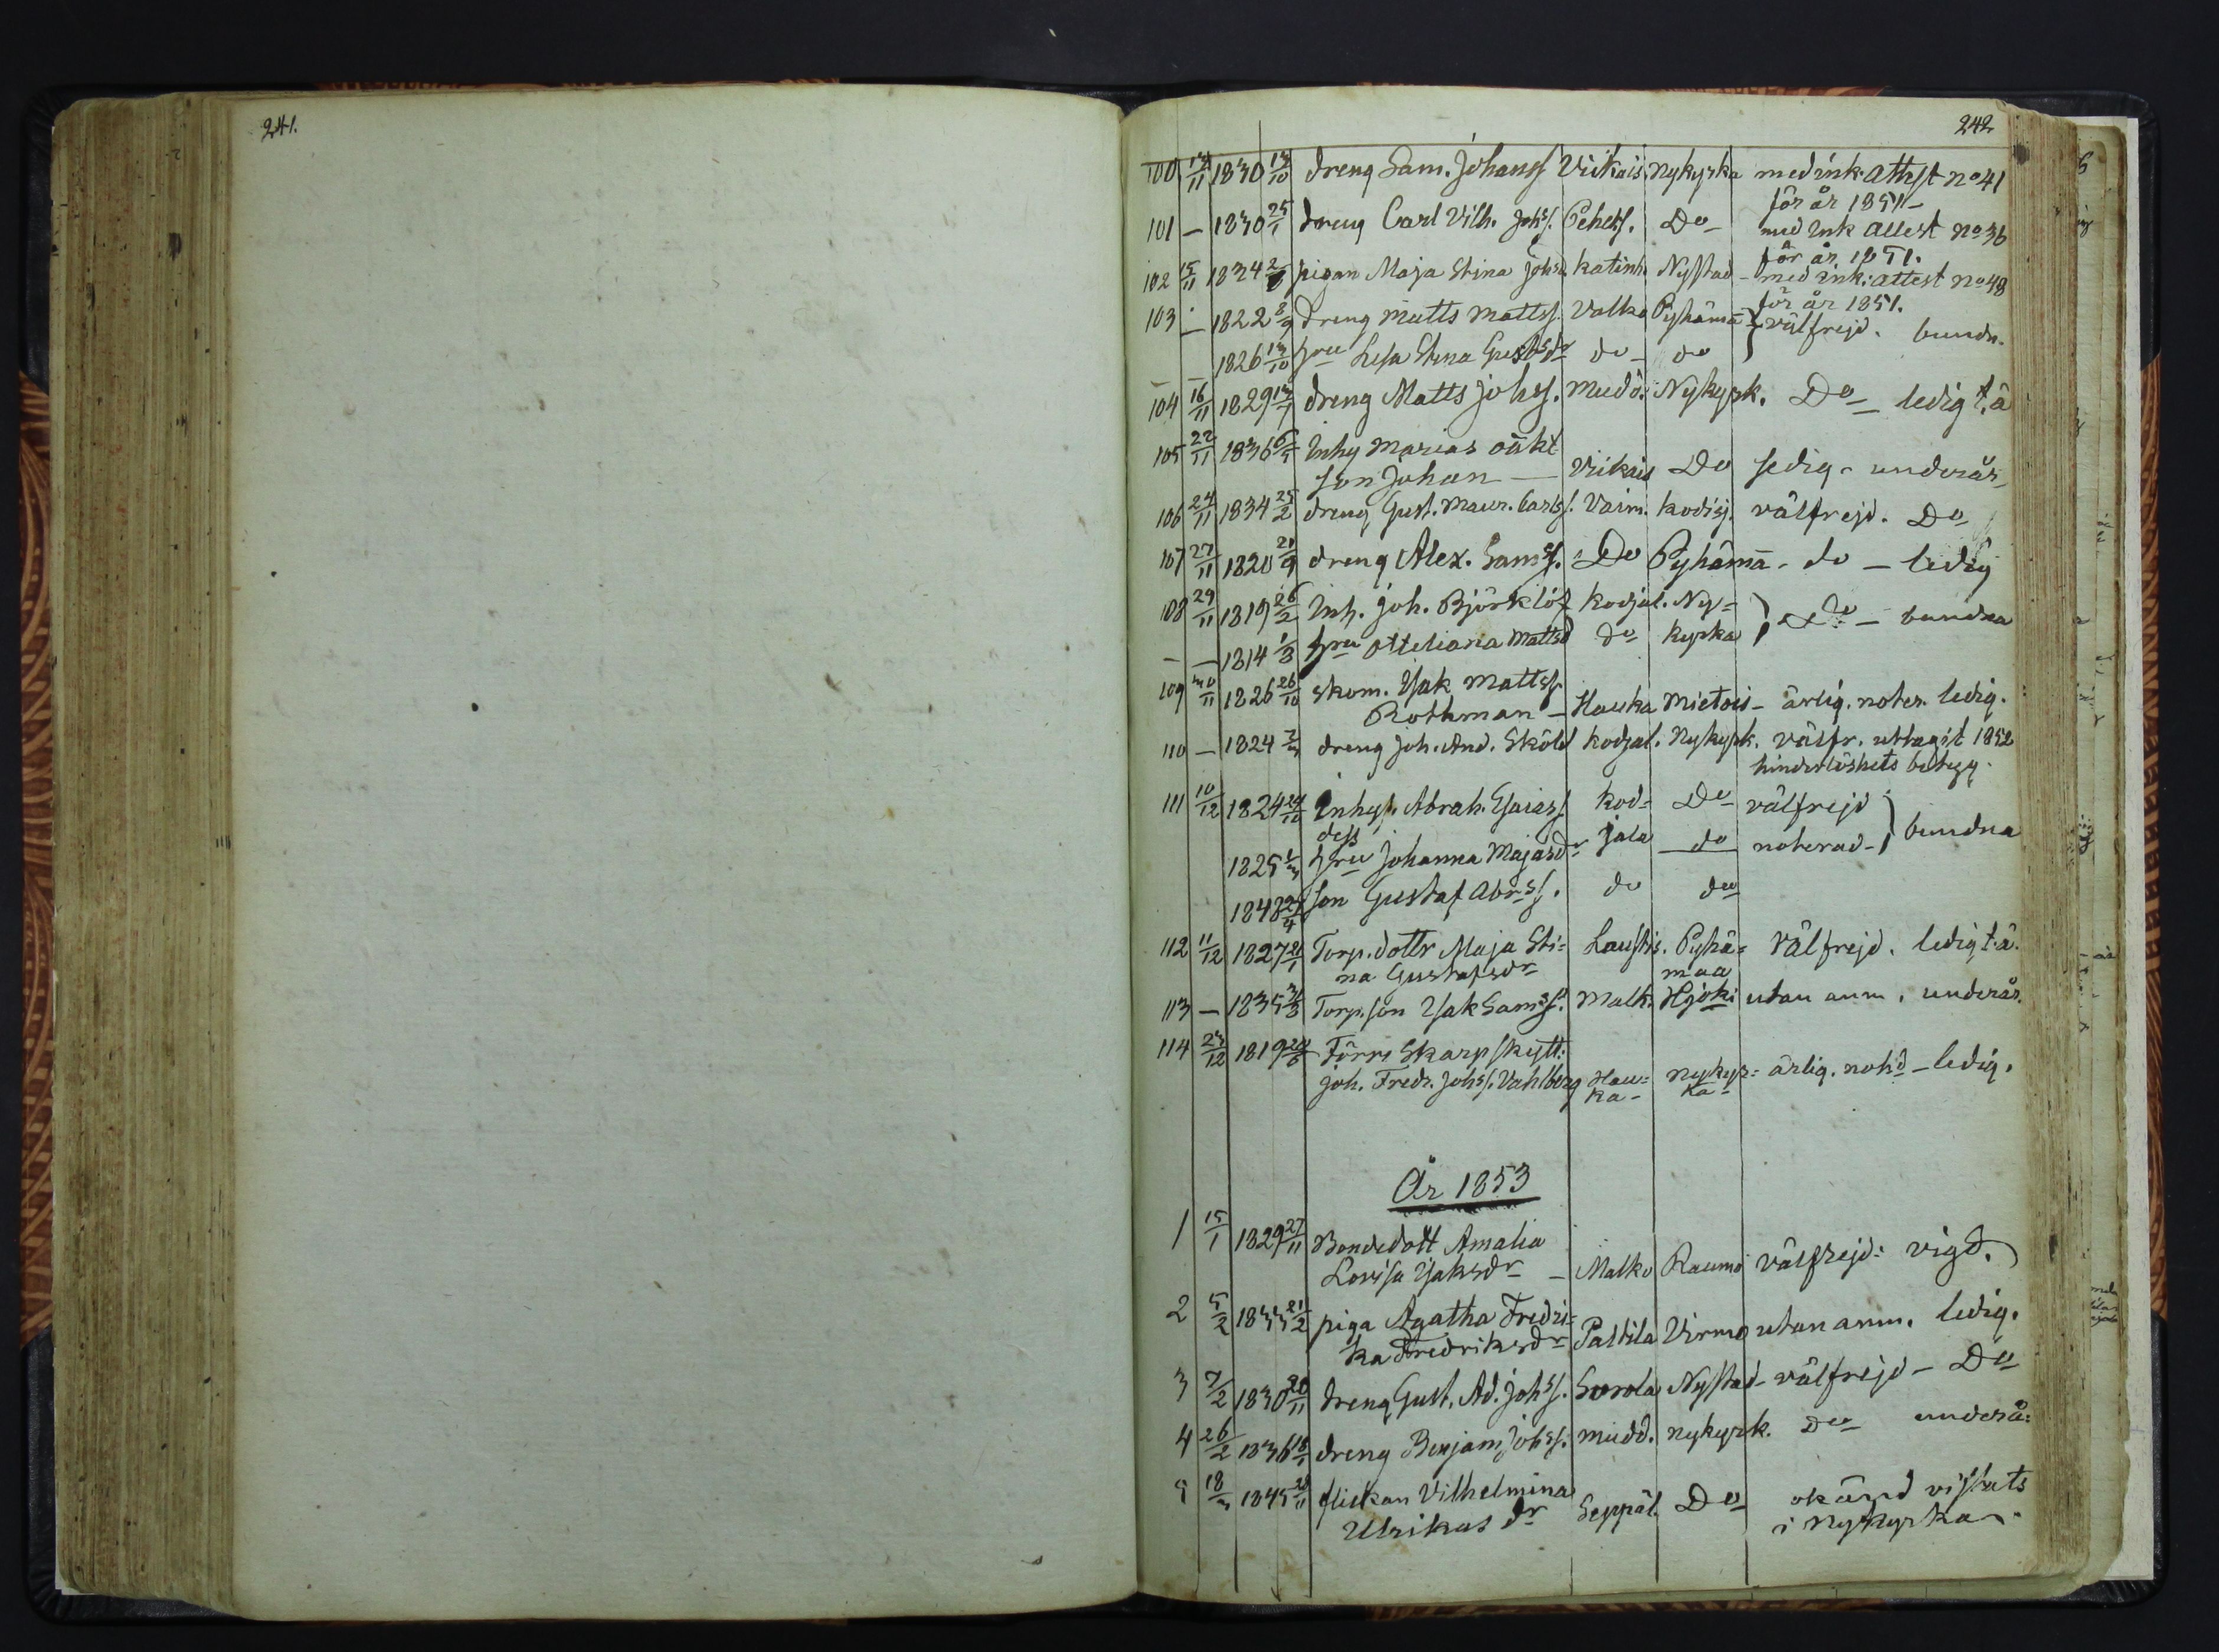 241.
242
100 13/11 1830 13/10 dreng Sam. Johanss Viikais Nykyrka med ink. attest no 41
för år 1851 -
101 - 1830 25/1 dreng Carl Vilh. Johss. Peheks. Do - med Ink attest no 36
för år 1851.
102 15/11 1834 pigan Maja Stina Johsd Katinh. Nystad - med ink: attest no 48
för år 1851.
103 - 1822 8/9 dreng Matts Mattss. Valka Pyhämä välfrejd. bundn.
- - 1826 13/10 hru Lisa Stina Gustsdr do - do
104 16/11 1829 dreng Matts Johss. Mudö. Nykyrk. Do - ledig t. ä
105 22/11 1836 Inhy Marias oäkt
son Johan - Viikais Do ledig - underår.
106 24/11 1834 25/2 dreng Gust. Maur. Carlss. Vaim. Kodisj. välfrejd. Do
107 27/11 1820 21/9 dreng Alex. Samss. Do Pyhämä - do - ledig
108 29/11 1819 26/2 Inh. Joh. Björklöf Kodjal. Ny=
- - 1814 1/3 hru Otteliana Mattsd do kyrka } Do - bundna
109 30/11 1826 26/10 skom. Isak Mattss.
Rothman - Hauka Mietois - ärlig. noter. ledig.
110 - 1824 dreng Joh. And. Sköld Kodjal. Nykyrk. välfr. uttagit 1852
hinderlöshets betyg.
111 10/12 1824 24/10 Inhys. Abrah. Esaiass. Kod= Do välfrejd
dess
1825 hru Johanna Majasdr jala do noterad - } bundna
1848 son Gustaf Abrss. do do
112 11/12 1827 Torp. dottr Maja Sti= Laustis. Pyhä= välfrejd. ledig t. ä.
na Gustafsdr maa
113 - 1835 Torp. son Isak Samss. Malk. Hjoki utan anm. underår.
114 23/12 1819 Förre Skarpskytt:
Joh. Fredr. Johss. Vahlberg Hau= Nykyr= ärlig. notd - ledig.
ka - ka -
År 1853
1 15/1 1829 27/11 Bondedott Amalia
Lovisa Isaksdr - Malko Raumo välfrejd: vigd.
2 5/2 1833 21/2 piga Agatha Fredri=
ka Fredriksdr Palsila Virmo utan anm. ledig.
3 7/2 1830 20/11 dreng Gust. Ad. Johss. Sorola Nystad - välfrejd - Do
4 26/2 1836 dreng Benjam Johss. Mudd. Nykyrk. Do underå:
5 18/3 1845 flickan Vilhelmina
Ulrikas dr Seppäl. Do okänd vistats
i Nykyrka